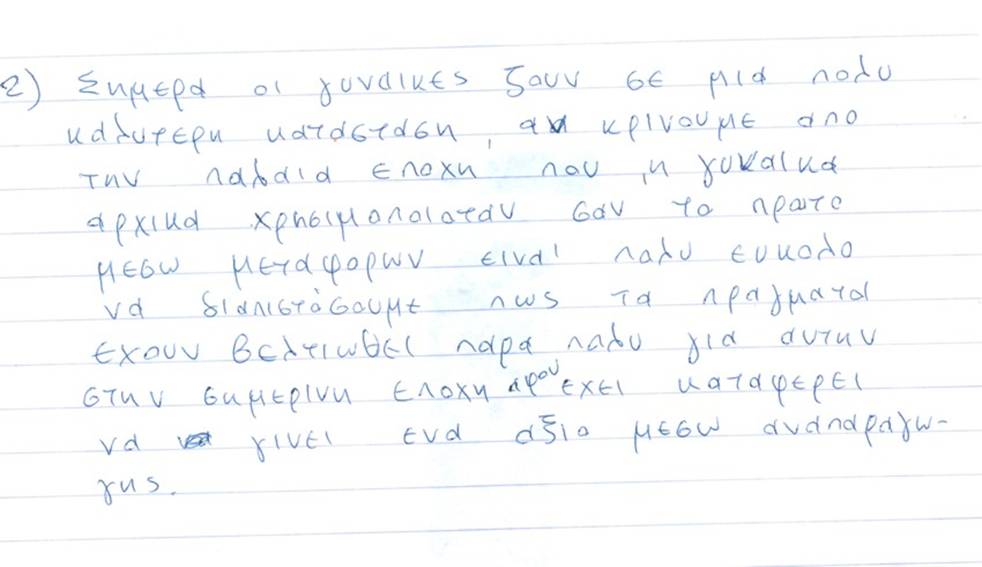 2) Σημερα οι γυναικες ζουν σε μια πολυ
καλυτερη κατασταση, αν κρινουμε απο
την παλαια εποχη που ,η γυναικα
αρχικα χρησιμοποιοταν σαν το πρωτο
μεσω μεταφορων ειναι παλυ ευκολο
να διαπιστόσουμε πως τα πραγματα
εχουν βελτιωθει παρα παλυ για αυτην
στην σημερινη εποχη αφου εχει καταφερει
να γινει ενα αξιο μεσω αναπαραγω-
γης.